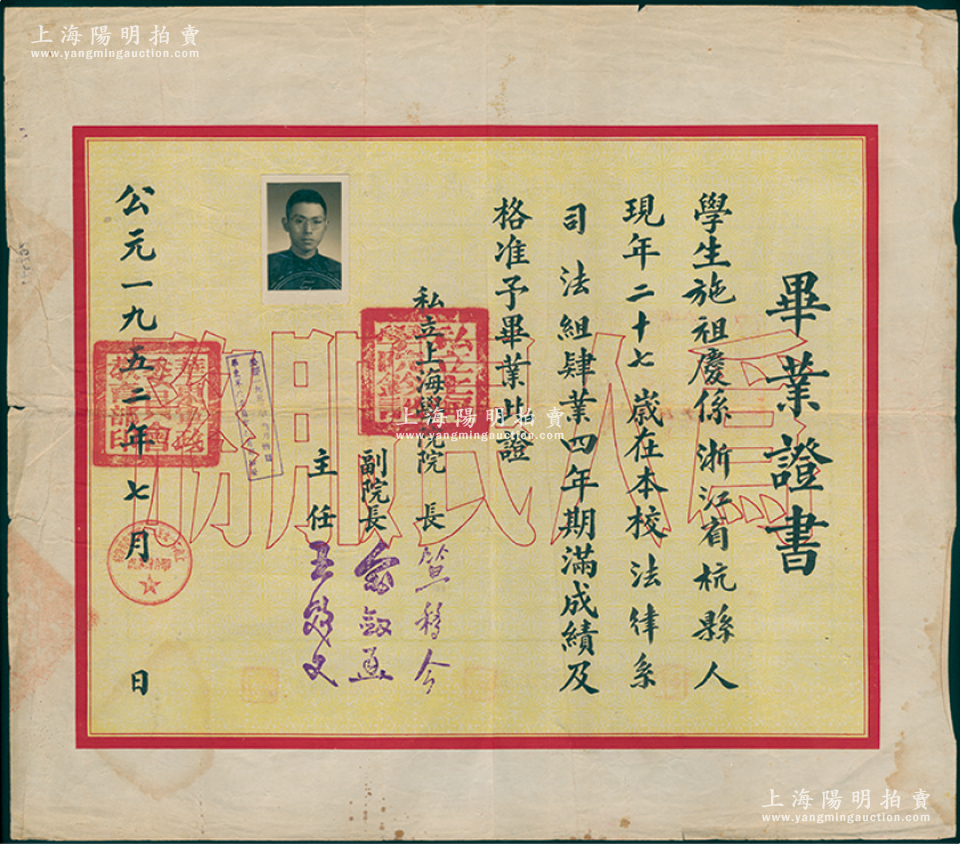 上海陽明拍賣
www.yangmingauction.com
上海陽明拍賣
www.yangmingauction.com
畢業證書
學生施祖慶係浙江省杭縣人
現年二十七歲在本校法律系
司法組肄業四年期滿成績及
格准予畢業此證
私立上海學院院長
副院長
主任
公元一九五二年七月 日
為人民服務
上海陽明拍賣
www.yangmingauction.com
上海陽明拍賣
www.yangmingauction.com